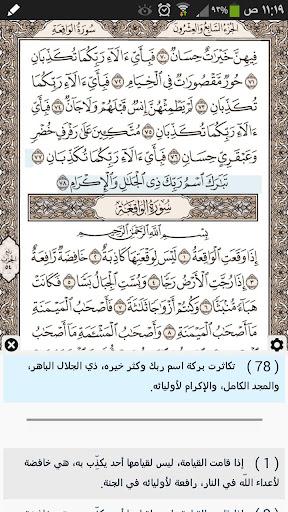 ١١:١٩ ص ٩٣%
سُورَةُ الوَاقِعَةِ الجُزْءُ السَّابِعُ وَالعِشْرُونَ
فِيهِنَّ خَيْرَٰتٌ حِسَانٌ ٧٠ فَبِأَيِّ ءَالَآءِ رَبِّكُمَا تُكَذِّبَانِ
٧١ حُورٌ مَّقْصُورَٰتٌ فِي ٱلْخِيَامِ ٧٢ فَبِأَيِّ ءَالَآءِ رَبِّكُمَا
تُكَذِّبَانِ ٧٣ لَمْ يَطْمِثْهُنَّ إِنسٌ قَبْلَهُمْ وَلَا جَآنٌّ ٧٤ فَبِأَيِّ
ءَالَآءِ رَبِّكُمَا تُكَذِّبَانِ ٧٥ مُتَّكِـِٔينَ عَلَىٰ رَفْرَفٍ خُضْرٍ
وَعَبْقَرِيٍّ حِسَانٍ ٧٦ فَبِأَيِّ ءَالَآءِ رَبِّكُمَا تُكَذِّبَانِ ٧٧
تَبَٰرَكَ ٱسْمُ رَبِّكَ ذِي ٱلْجَلَٰلِ وَٱلْإِكْرَامِ ٧٨
سُورَةُ الوَاقِعَةِ
بِسْمِ ٱللَّهِ ٱلرَّحْمَٰنِ ٱلرَّحِيمِ
إِذَا وَقَعَتِ ٱلْوَاقِعَةُ ١ لَيْسَ لِوَقْعَتِهَا كَاذِبَةٌ ٢ خَافِضَةٌ رَّافِعَةٌ
٣ إِذَا رُجَّتِ ٱلْأَرْضُ رَجًّا ٤ وَبُسَّتِ ٱلْجِبَالُ بَسًّا ٥ فَكَانَتْ
هَبَآءً مُّنۢبَثًّا ٦ وَكُنتُمْ أَزْوَٰجًا ثَلَٰثَةً ٧ فَأَصْحَٰبُ ٱلْمَيْمَنَةِ
مَآ أَصْحَٰبُ ٱلْمَيْمَنَةِ ٨ وَأَصْحَٰبُ ٱلْمَشْـَٔمَةِ مَآ أَصْحَٰبُ
الحزب
٥٤
( 78 ) تكاثرت بركة اسم ربك وكثر خيره، ذي الجلال الباهر،
والمجد الكامل، والإكرام لأوليائه.
( 1 ) إذا قامت القيامة، ليس لقيامها أحد يكذِّب به، هي خافضة
لأعداء اللّه في النار، رافعة لأوليائه في الجنة.